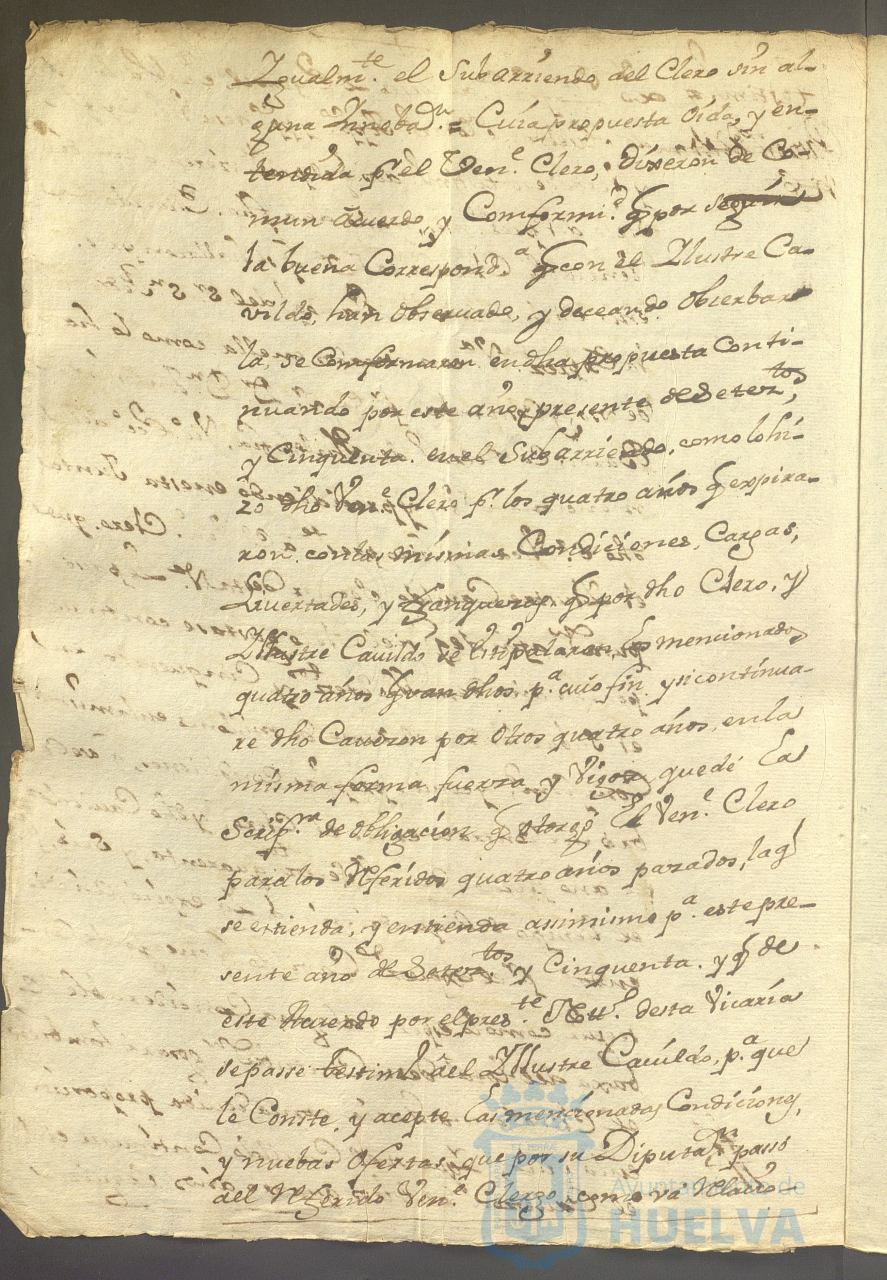 Igualmte. el Subarriendo del Clero sin al-
guna = Cuia propuesta oida, y en-
tendida pr. el Vene. Clero, dixeron de Co-
mun acuerdo, y Comformid. q por seguir
la buena Corresponda. q con el Illustre Ca-
vildo, han observado, y deceando observar
la, se Comformaron en dha propuesta Conti-
nuando por este año presente de Setezros,
y Cinquenta. en el Subarriendo, como lo hi-
zo dho Vene. Clero pr. los quatro años q expira-
ron. con las mismas Condiciones, Cargas,
Livertades, y franquezas, q por dho Clero, y
Illustre Cavildo se estipularon, en los mencionados
quatro años q van dhos, pa. cuio fin y si continua-
re dho Caveron por otros quatro años, en la
misma forma fuerza, y Vigor, quede La
Scripra. de obligacion q otorgo El Vene. Clero
para los Referidos quatro años pasados, la q
se extienda, y entienda assimismo pa. este pre-
sente año de Seteztos. y Cinquenta. y q de
este Acuerdo por el preste. Nottº. desta Vicaria
se passe testimº. del Illustre Cavildo, pa. que
le Conste, y acepte Las mencionadas Condiciones,
y nuebas ofertas, que por su Diputaon. passo
del Referido Vene. Clero, como va Relacio
Ayuntamiento de
HUELVA